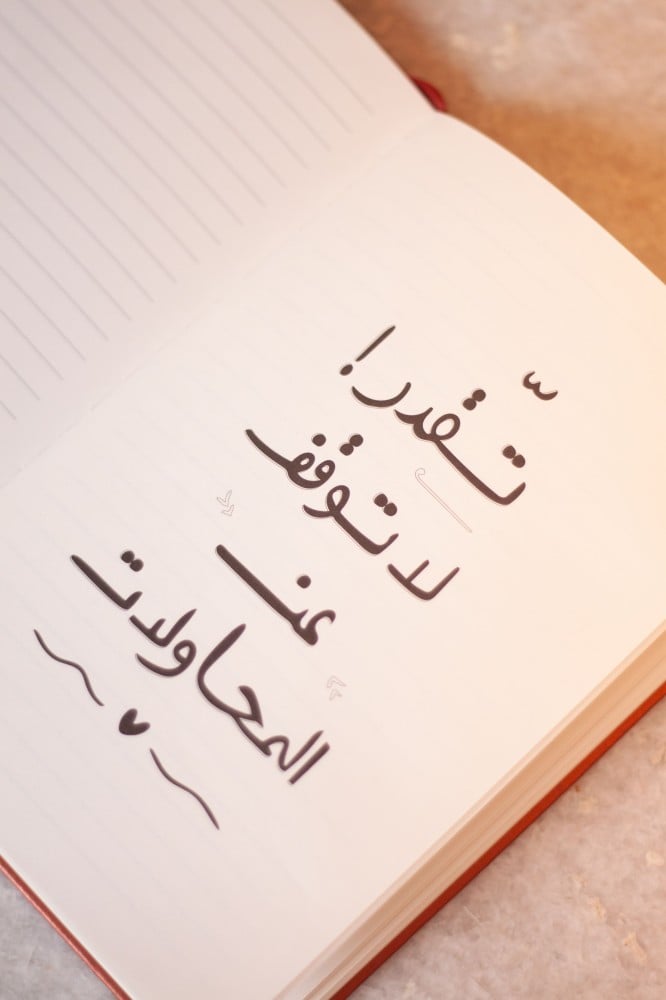 تـقدر!
لا توقف
عن
المحاولات